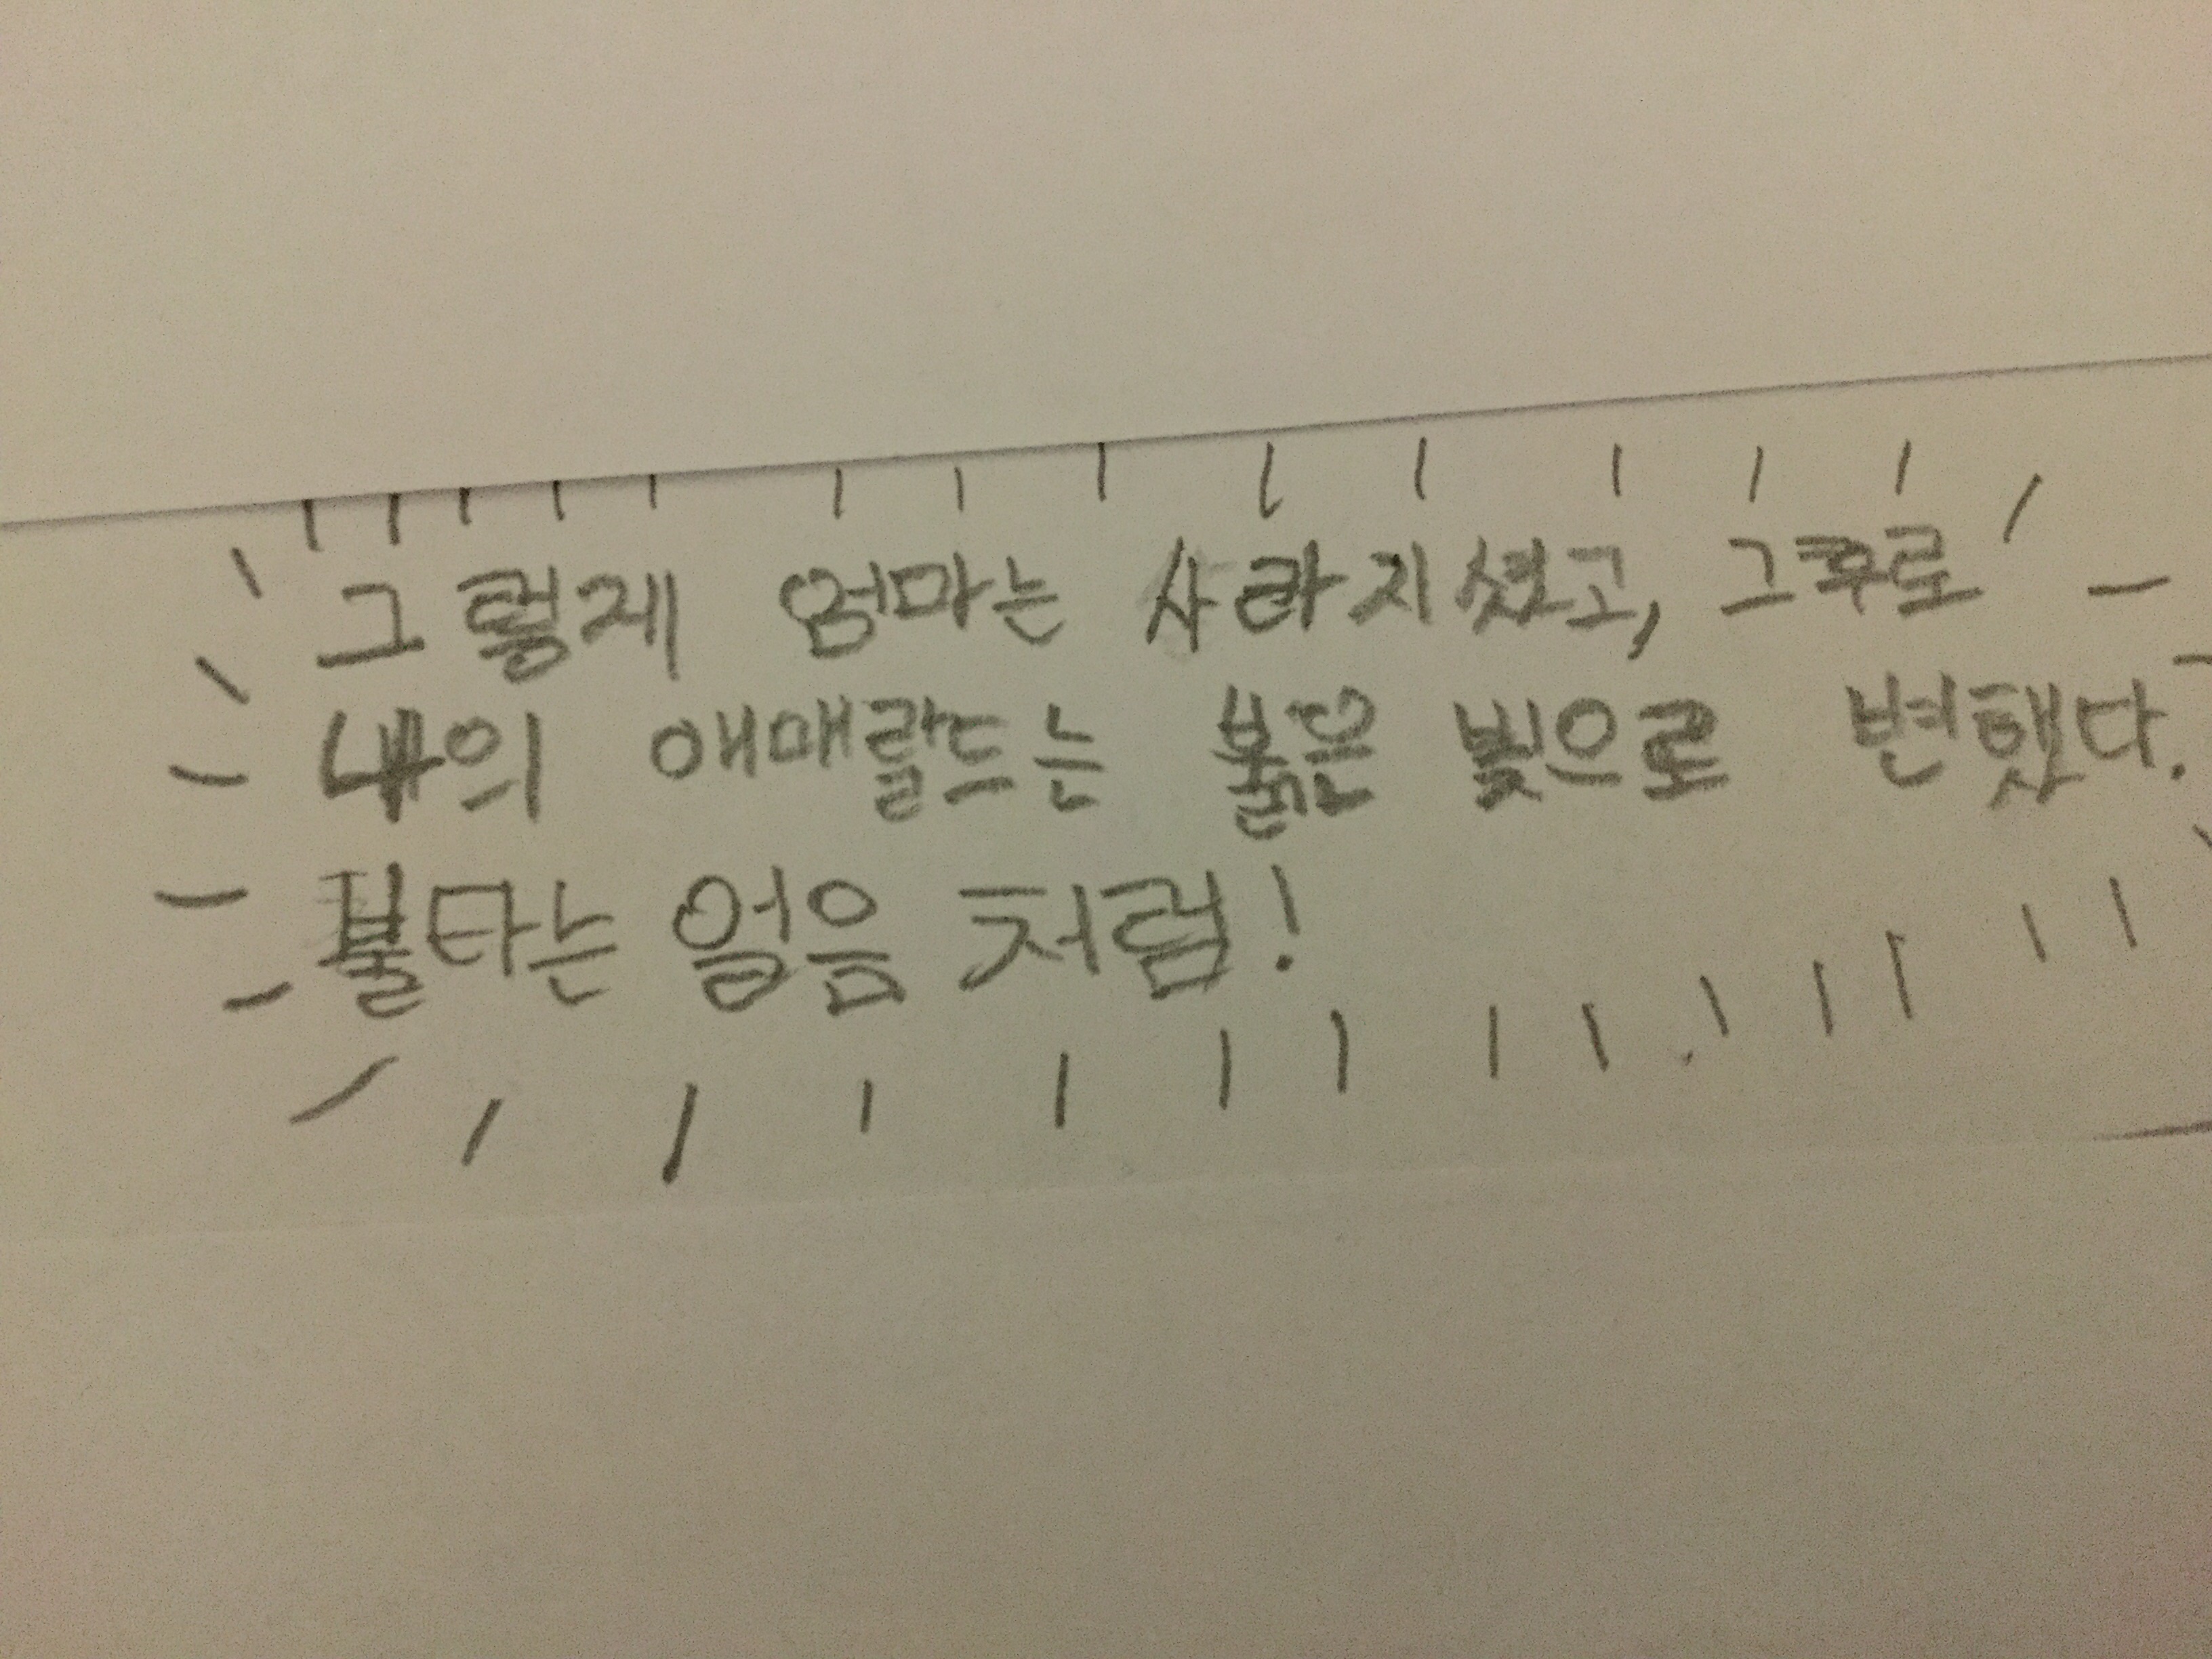 그렇게 엄마는 사라지셨고, 그후로
내의 애매랄드는 붉은 빛으로 변했다.
불타는 얼음 처럼!